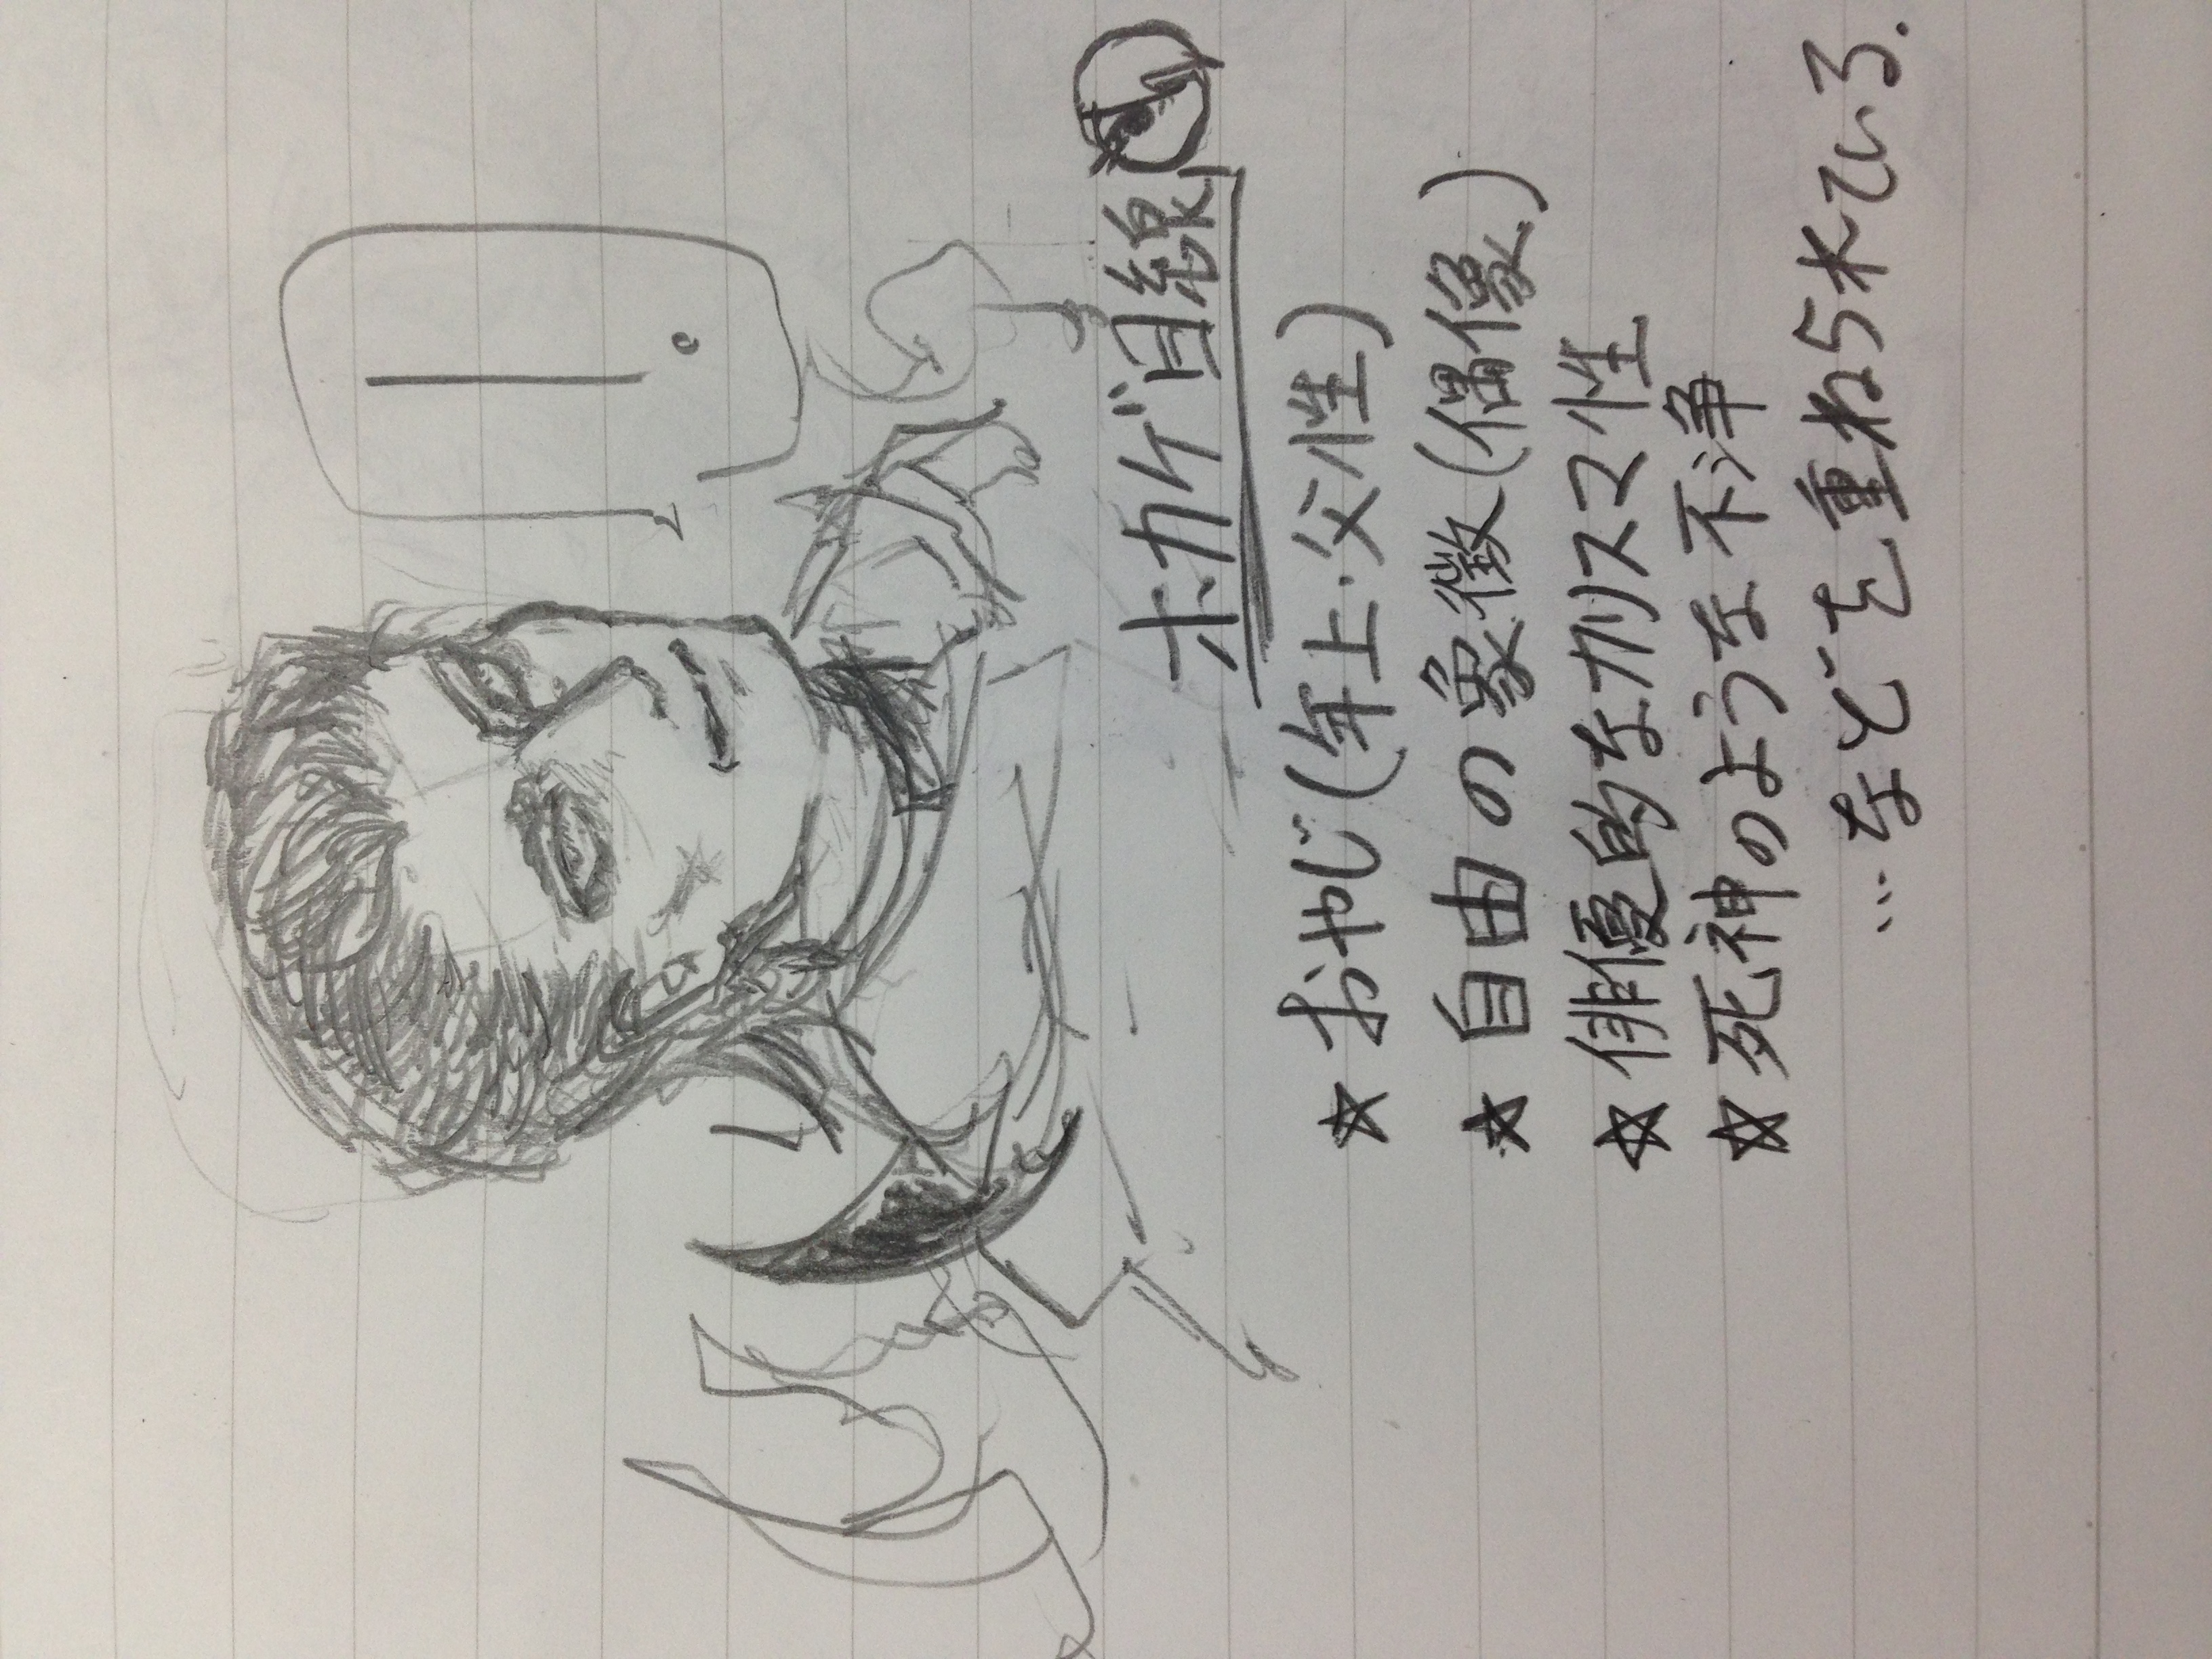 ホカゲ目線
☆おやじ(年上・父性)
★自由の象徴(偶像)
☆俳優的なカリスマ性
☆死神のような不浄
…などを重ねられている.